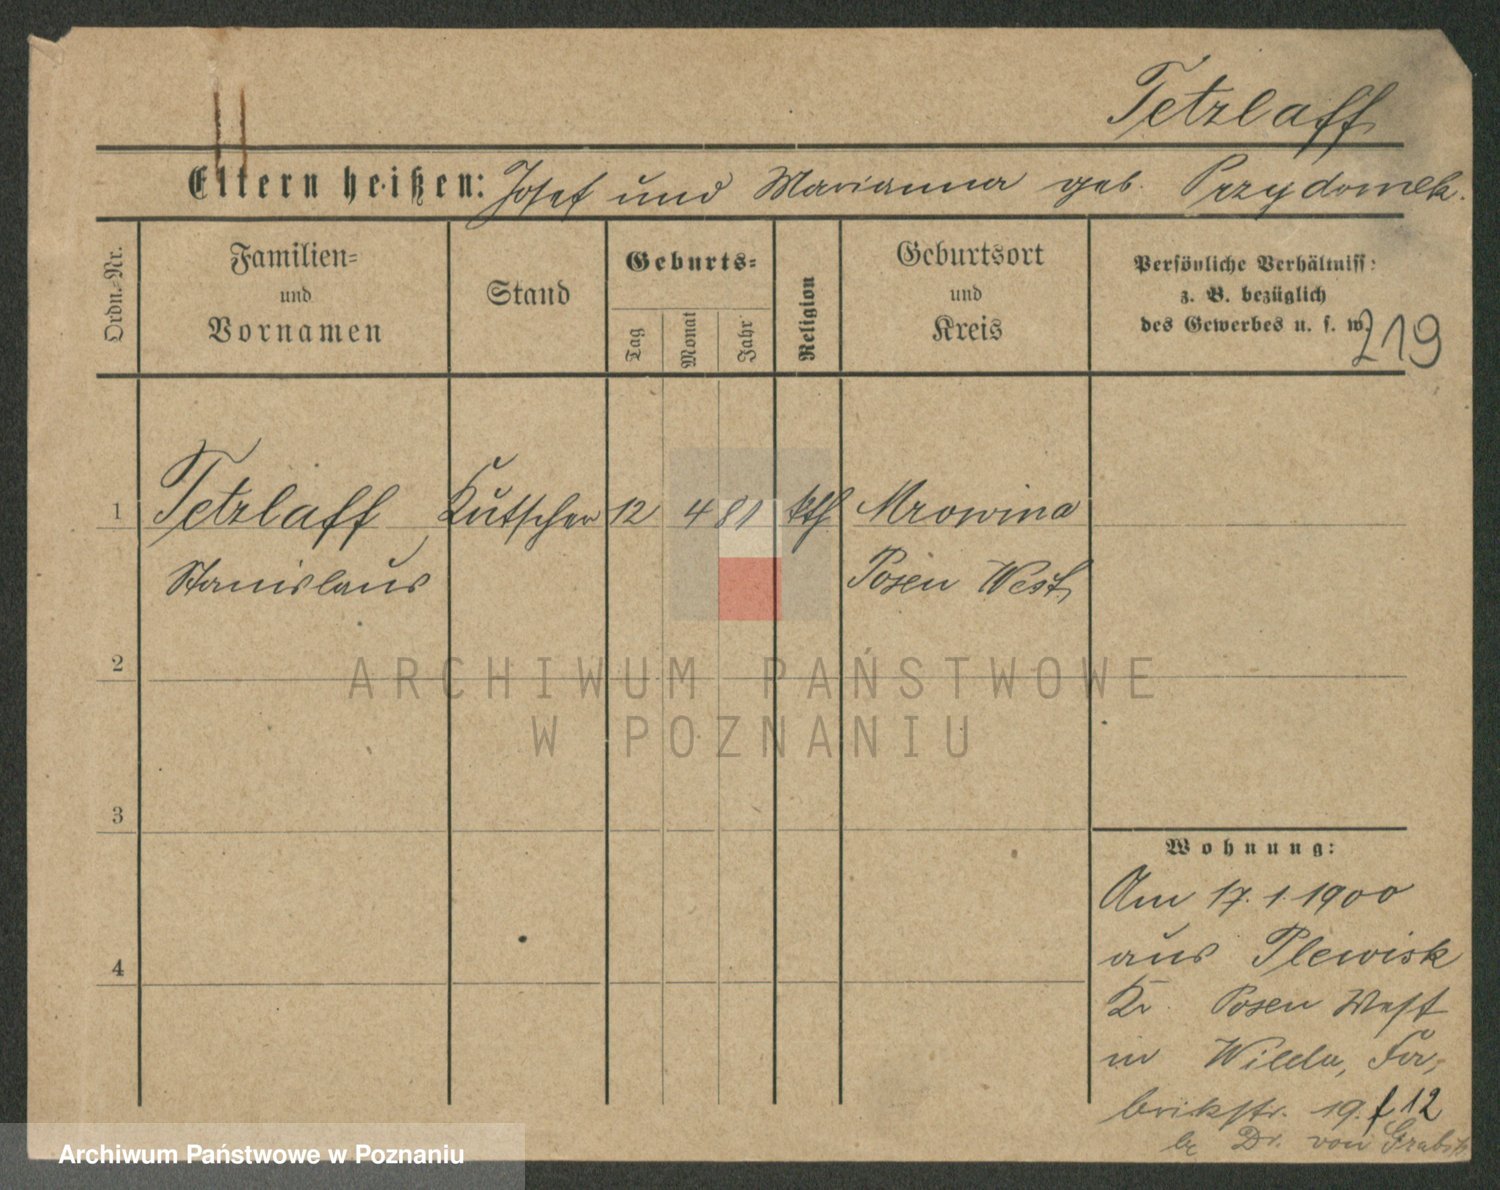 Tetzlaff
Eltern heißen: Josef und Marianna geb. Przydomek.
Ordn.-Nr.
Familien=
und
Vornamen
Stand
Geburts=
Tag
Monat
Jahr
Religion
Geburtsort
und
Kreis
Persönliche Verhältniss:
z. B. bezüglich
des Gewerbes u. s. w.
219
1 Tetzlaff Kutscher 12 4 81 kth Mrowina
Stanislaus Posen West
2
ARCHIWUM PAŃSTWOWE
W POZNANIU
3
Wohnung:
Am 17. 1. 1900
aus Plewisk
4
Kr. Posen West
in Wilda, Fa-
brikstr. 19. 12
Dr. von
Archiwum Państwowe w Poznaniu